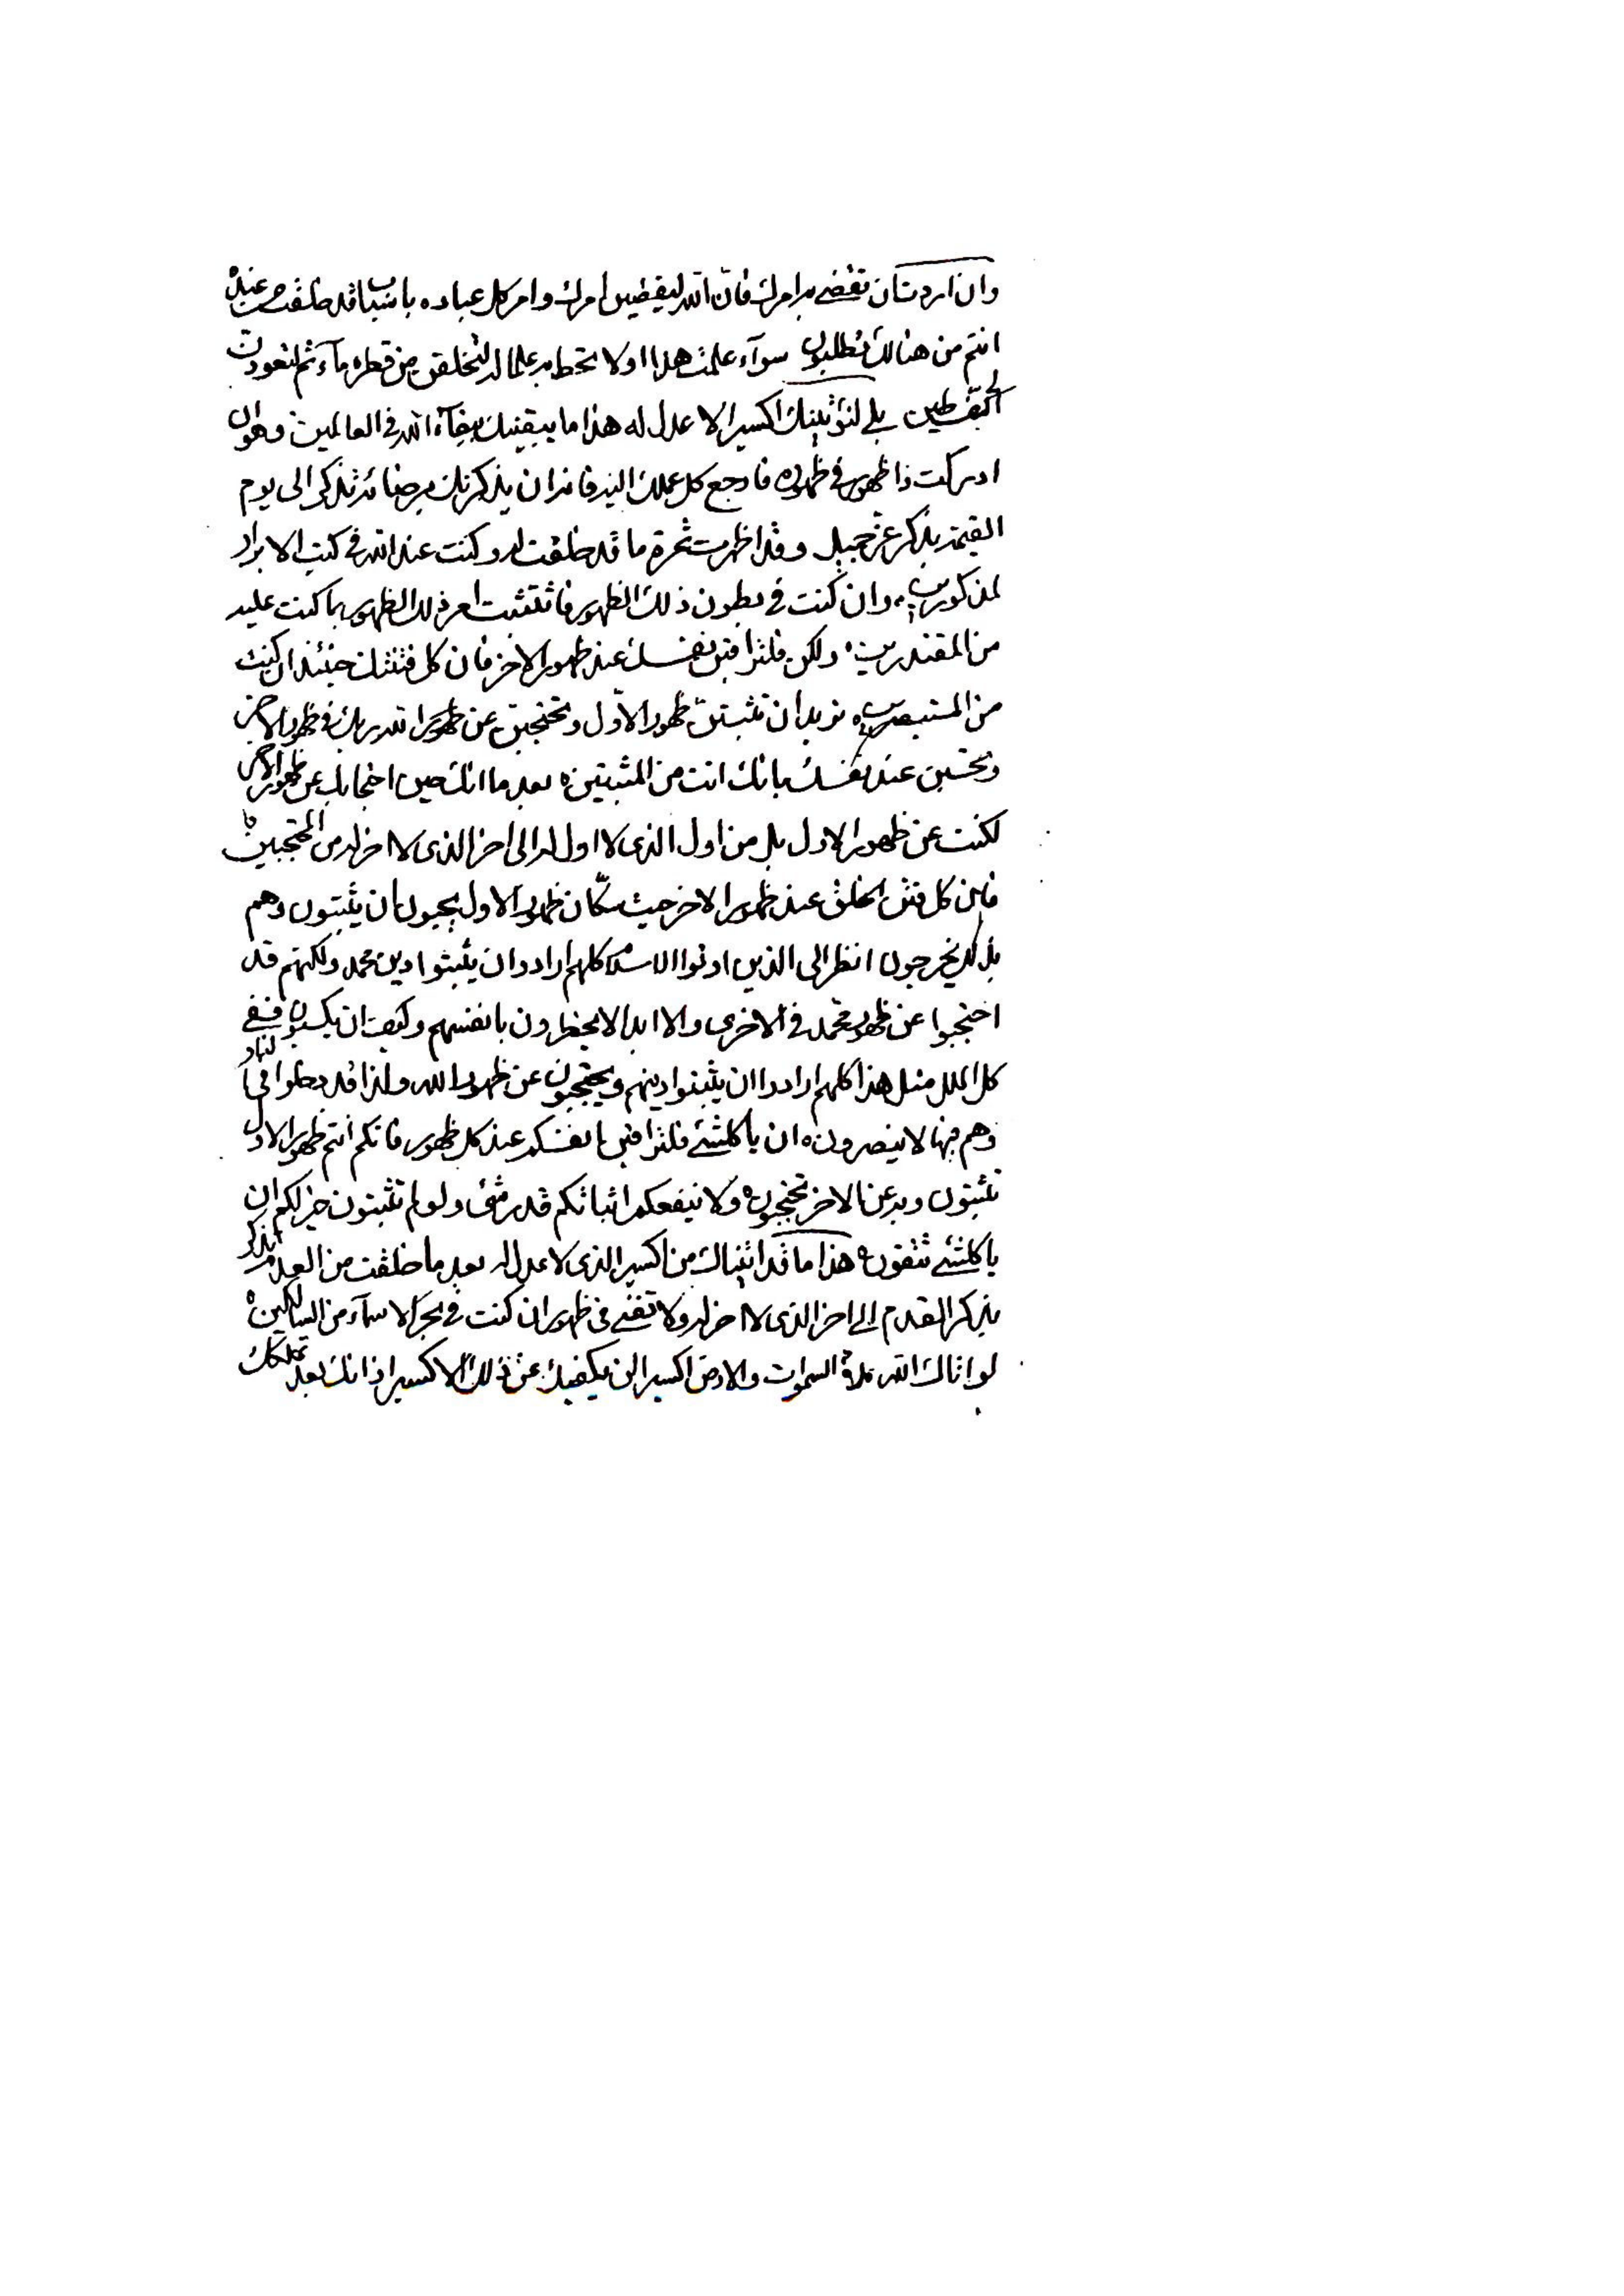 وان اردت ان تقضى به امرك فان الله ليقضين امرك وامر كل عباده باسباب قد خلقت من عنده
انتم من هنالك تطلبون سوآء علمت هذا او لا تحط به علما لتخلقن من قطره مآء ثم لتعودن
بلى لنؤتينك اكسيرا لا عدل له هذا ما يبقينك ببقآء الله في العالمين وهو ان
ادركت ذا ظهور في ظهوره فارجع كل عملك اليه فانه ان يذكرنك برضائه تذكر الى يوم
القيمة بذكر عز جميل وقد اظهرت ثمرة ما قد خلقت له وكنت عند الله في كتب الابرار
لمن كورين وان كنت في بطون ذلك الظهور فاثتثبت امر ذلك الظهور بما كنت عليه
من المقتدرين ولكن فلتراقبن نفسك عند ظهور الاخر فان كل فتنتك حينئذ ان كنت
من المستبصرين تريد ان تثبتن ظهور الاول وتحتجبن عن ظهور الله ربك في ظهور الاخر
وتحسبن عند نفسك بانك انت من المثبتين بعد ما انك حين احتجابك عن ظهور الاخر
لكنت عن ظهور الاول بل من اول الذى لا اول له الى اخر الذى لا اخر له من المحتجبين
فان كل فتن الخلق عند ظهور الاخر حيث سكان ظهور الاول يحبون ان يثبتون وهم
بذلك يخرجون انظر الى الذين اوتوا الاسلام كلهم ارادوا ان يثبتوا دين محمد ولكنهم قد
احتجبوا عن ظهور محمد في الاخرى والا ابدا لا يخطرون بانفسهم وكيف ان يكسبون ففى
كل الملل مثل هذا كلهم ارادوا ان يثبتوا دينهم ويحتجبون عن ظهور الله ولذا قد دخلوا في النار
وهم فيها لا ينصرون ان يا كلشئ فلتراقبن انفسكم عند كل ظهور فانكم انتم ظهور الاول
تثبتون وبه عن الاخر تحتجبون ولا ينفعكم اثباتكم قدر شئ ولو لم تثبتون خير لكم ان
يا كلشئ تتقون هذا ما قد اتيناك من اكسير الذى لا عدل له بعد ما خلقت من العدم لتذكر
بذكر القدم الى اخر الذى لا اخر له ولا تفنى في ظهور ان كنت في بحر الاسمآء من السالكين
لو اتاك الله ملاء السموات والارض اكسيرا لن يكفيك عن ذلك الاكسير اذ انك بعد تملكك